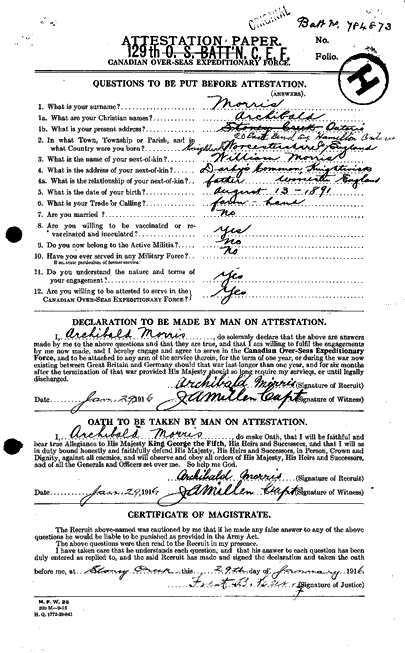 ORIGINAL
Batt N. 784873
ATTESTATION PAPER.
No.
129th O. S. BATT'N, C. E. F.
Folio.
CANADIAN OVER-SEAS EXPEDITIONARY FORCE.
H
QUESTIONS TO BE PUT BEFORE ATTESTATION.
(ANSWERS).
1. What is your surname? Morris
1a. What are your Christian names? Archibald
1b. What is your present address? Stoney Creek, Ontario
Hamilton Ontario
2. In what Town, Township or Parish, and in
what Country were you born? Worcestershire England
3. What is the name of your next-of-kin? William Morris
4. What is the address of your next-of-kin? Common,
4a. What is the relationship of your next-of-kin? father England
5. What is the date of your birth? August 13 - 1891
6. What is your Trade or Calling? farm - hand
7. Are you married? no
8. Are you willing to be vaccinated or re-
vaccinated and inoculated? yes
9. Do you now belong to the Active Militia? no
10. Have you ever served in any Military Force? no
If so, state particulars of former service.
11. Do you understand the nature and terms of
your engagement? yes
12. Are you willing to be attested to serve in the
CANADIAN OVER-SEAS EXPEDITIONARY FORCE? Yes
DECLARATION TO BE MADE BY MAN ON ATTESTATION.
I, Archibald Morris, do solemnly declare that the above are answers
made by me to the above questions and that they are true, and that I am willing to fulfil the engagements
by me now made, and I hereby engage and agree to serve in the Canadian Over-Seas Expeditionary
Force, and to be attached to any arm of the service therein, for the term of one year, or during the war now
existing between Great Britain and Germany should that war last longer than one year, and for six months
after the termination of that war provided His Majesty should so long require my services, or until legally
discharged.
Archibald Morris (Signature of Recruit)
Date Jan. 29 1916 J A Millen Capt (Signature of Witness)
OATH TO BE TAKEN BY MAN ON ATTESTATION.
I, Archibald Morris, do make Oath, that I will be faithful and
bear true Allegiance to His Majesty King George the Fifth, His Heirs and Successors, and that I will as
in duty bound honestly and faithfully defend His Majesty, His Heirs and Successors, in Person, Crown and
Dignity, against all enemies, and will observe and obey all orders of His Majesty, His Heirs and Successors,
and of all the Generals and Officers set over me. So help me God.
Archibald Morris (Signature of Recruit)
Date Jan. 29 1916 J A Millen Capt (Signature of Witness)
CERTIFICATE OF MAGISTRATE.
The Recruit above-named was cautioned by me that if he made any false answer to any of the above
questions he would be liable to be punished as provided in the Army Act.
The above questions were then read to the Recruit in my presence.
I have taken care that he understands each question, and that his answer to each question has been
duly entered as replied to, and the said Recruit has made and signed the declaration and taken the oath
before me, at Stoney Creek this 29th day of January 1916
(Signature of Justice)
M. F. W. 23
200 M-9-15
H. Q. 1772-39-841